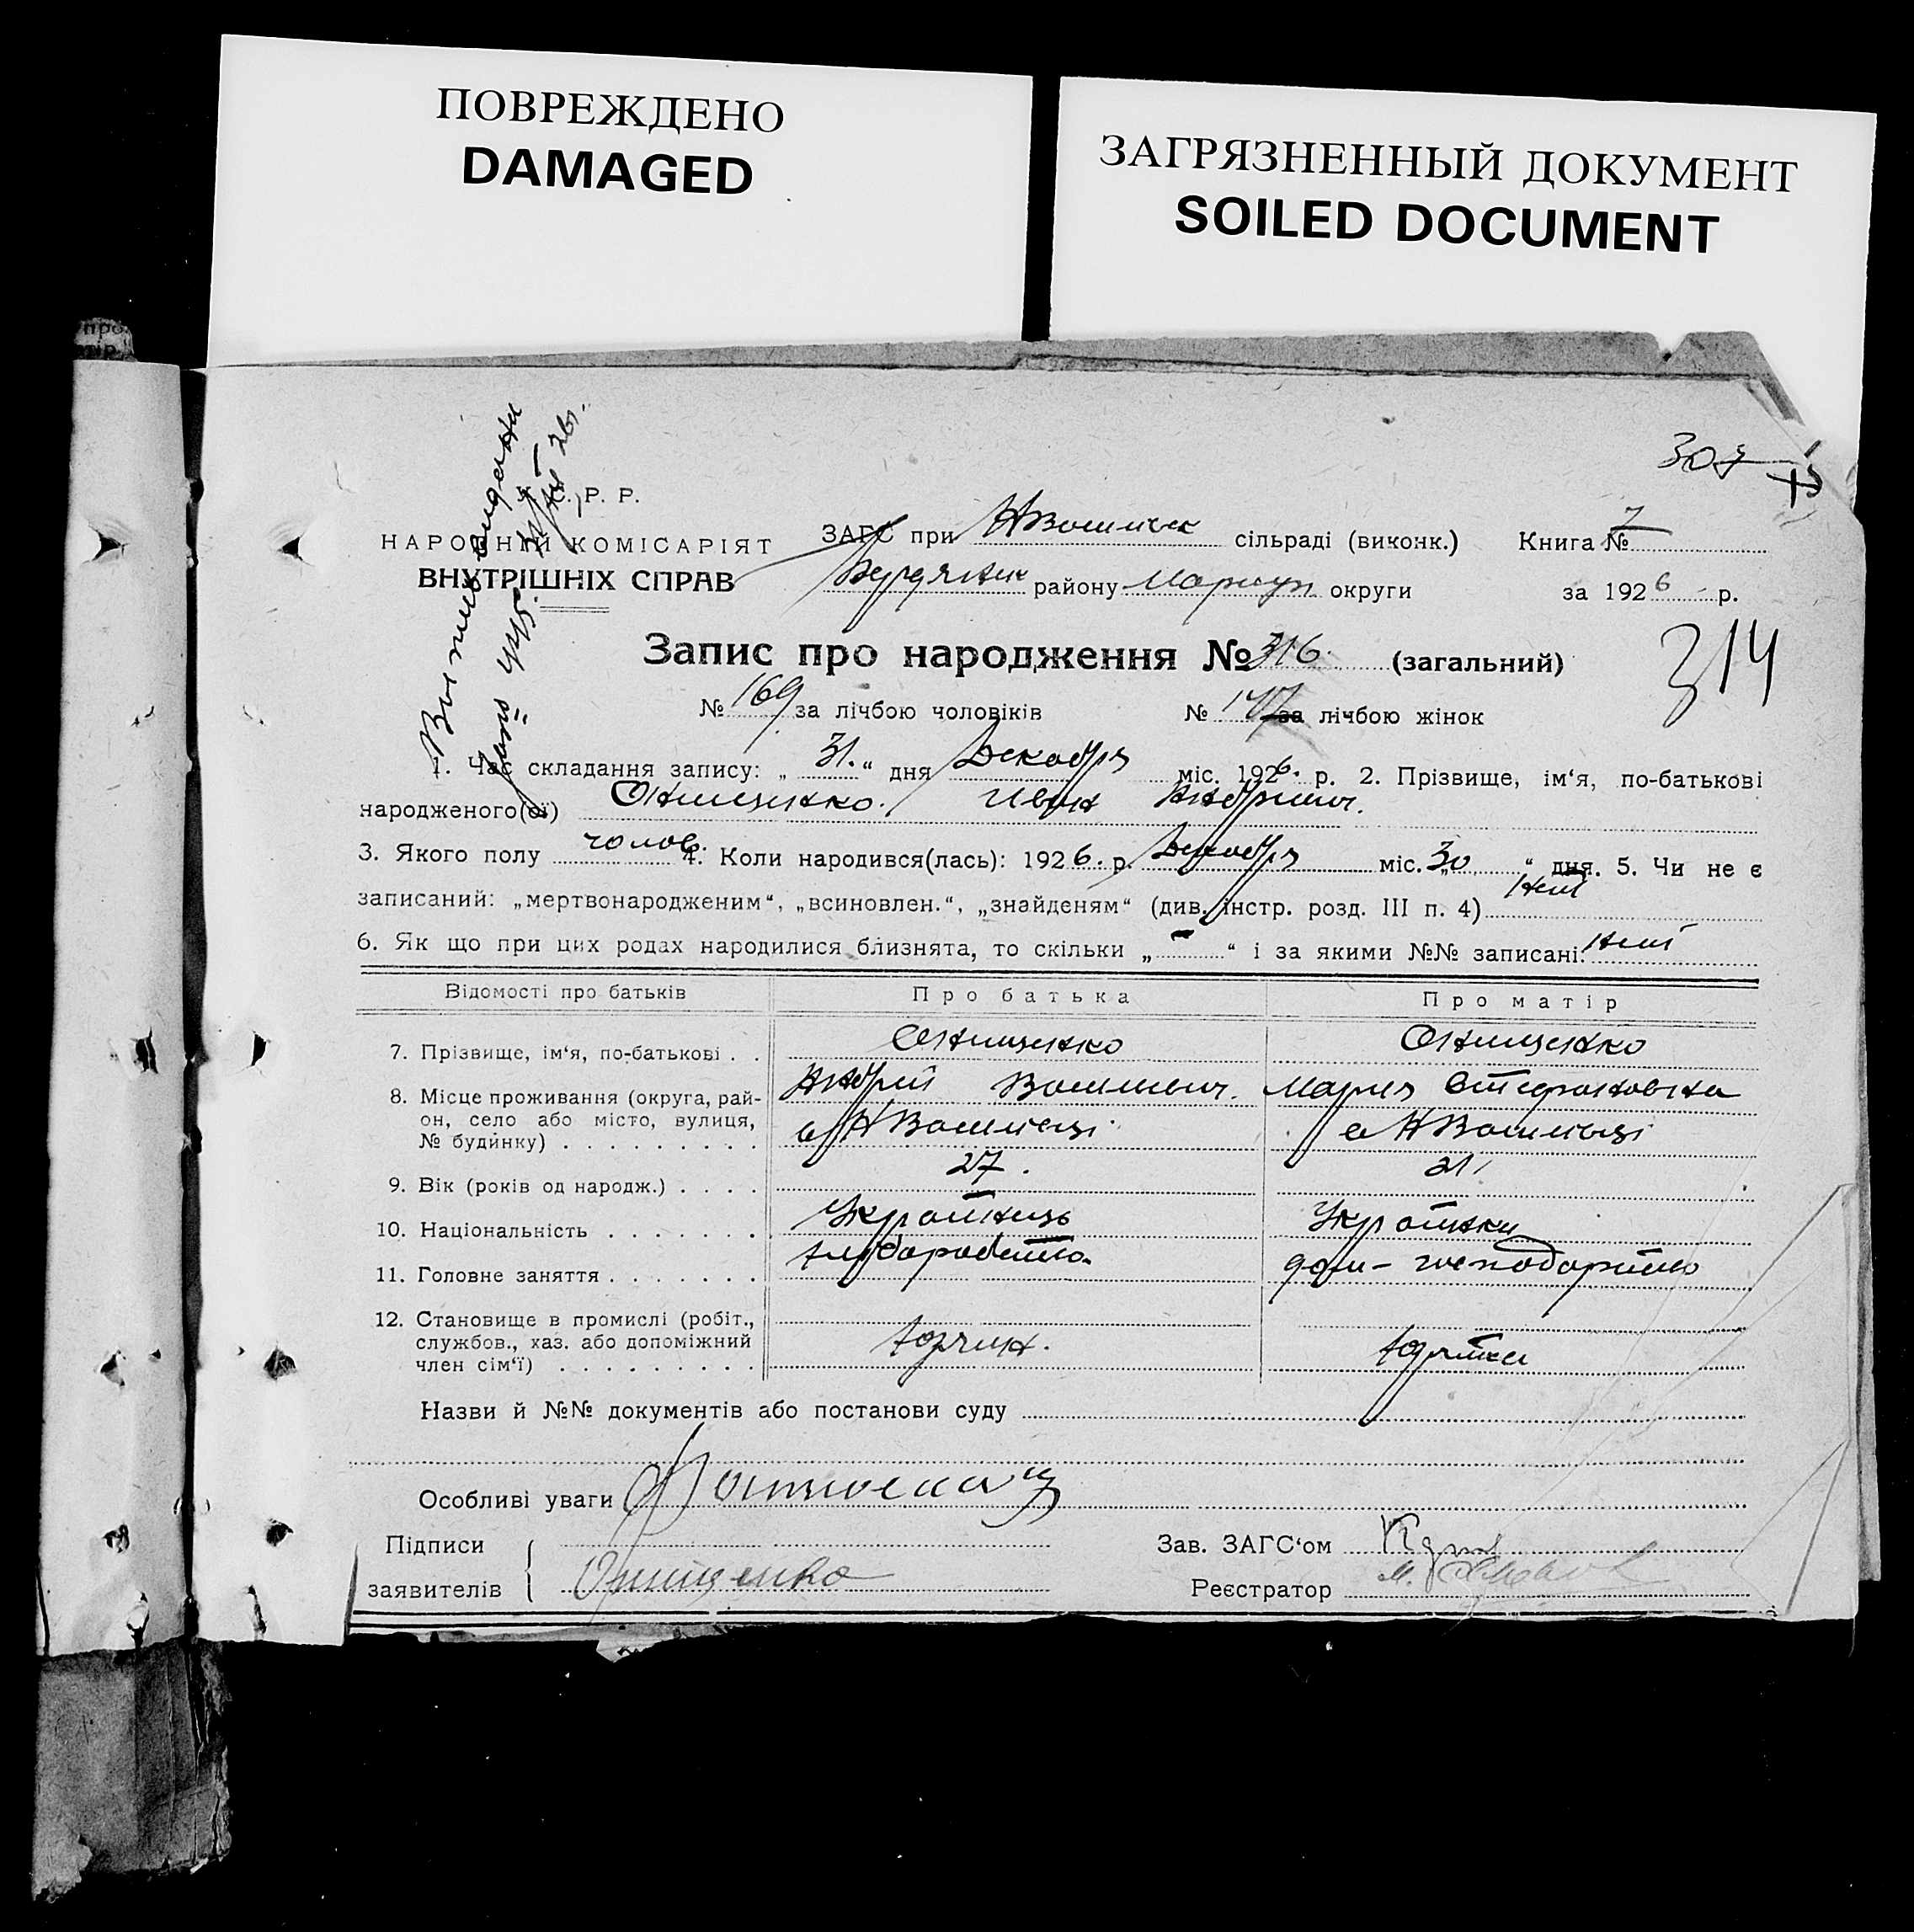 ПОВРЕЖДЕНО
DAMAGED
ЗАГРЯЗНЕННЫЙ ДОКУМЕНТ
SOILED DOCUMENT
307
С. Р. Р.
НАРОДНІЙ КОМІСАРІЯТ
ВНУТРІШНІХ СПРАВ
ЗАГС при сільраді (виконк.) Книга № 7
Бердянск району Мариуп округи за 1926 р.
Запис про народження № 316. (загальний)
314
№ 169 за лічбою чоловіків № 147 за лічбою жінок
1. Час складання запису: „ 31. “ дня Декабря міс. 1926. р. 2. Прізвище, ім‘я, по-батькові
народженого(ої) Онищенко. Иван Андриевич.
3. Якого полу чолов. 4. Коли народився(лась): 1926. р. Декабря міс. „30 “ дня. 5. Чи не є
записаний: „мертвонародженим“, „всиновлен.“, „знайденям“ (див. інстр. розд. III п. 4) Нет
6. Як що при цих родах народилися близнята, то скільки „ – “ і за якими №№ записані: Нет
Відомості про батьків Про батька Про матір
7. Прізвище, ім‘я, по-батькові . . Онищенко Онищенко
Андрей Мария Стефановна
8. Місце проживання (округа, рай-
он, село або місто, вулиця,
№ будинку) . . . . . . . . .
9. Вік (років од народж.) . . . . 27. 21.
10. Національність . . . . . . . Українець Українка
11. Головне заняття . . . . . . . хлеборобство дом-господарство
12. Становище в промислі (робіт.,
службов., хаз. або допоміжний
член сім‘ї) . . . . . . . . .
Назви й №№ документів або постанови суду
Особливі уваги
Підписи
заявителів Онищенко
Зав. ЗАГС‘ом
Реєстратор